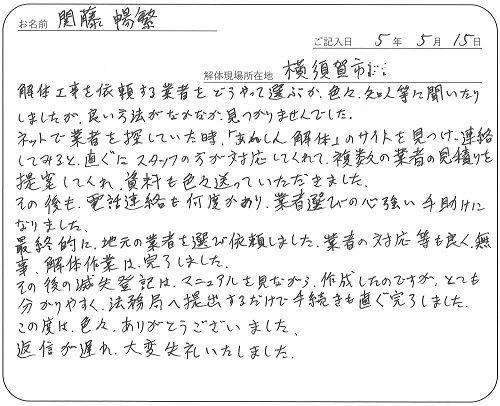 お名前 関藤 暢繁
ご記入日 5年 5月 15日
解体現場所在地 横須賀市
解体工事を依頼する業者をどうやって選ぶか、色々、知人等に聞いたり
しましたが、良い方法がなかなか見つかりませんでした。
ネットで業者を探していた時、「あんしん解体」のサイトを見つけ、連絡
してみると、直ぐにスタッフの方が対応してくれて、複数の業者の見積りを
提案してくれ、資料も色々送っていただきました。
その後も、電話連絡も何度かあり、業者選びの心強い手助けに
なりました。
最終的に、地元の業者を選び依頼しました。業者の対応等も良く、無
事、解体作業は完了しました。
その後の滅失登記は、マニュアルを見ながら、作成したのですが、とても
分かりやすく、法務局へ提出するだけで手続きも直ぐ完了しました。
この度は、色々、ありがとうございました、
返信が遅れ、大変失礼いたしました。